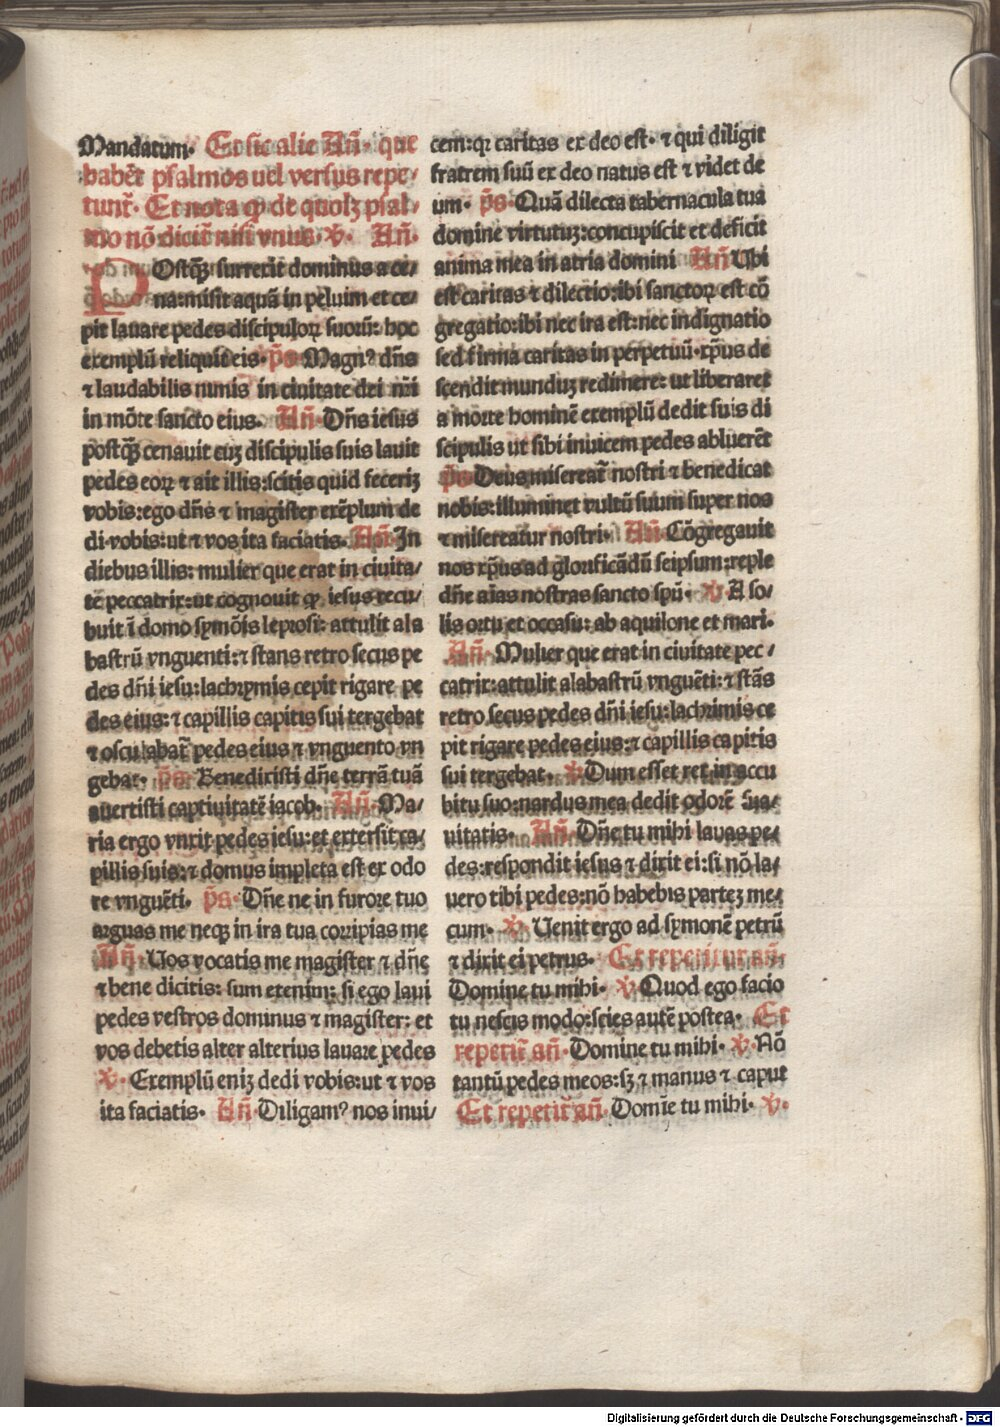 Mandatum. Et sic alie Añ. que
habēt psalmos uel versus repe/
tunt̄. Et nota ꝙ de quolꝫ psal/
mo nō dicit̄ nisi vnus. ℣. Añ.
POstqꝫ surrexit dominus a ce/
na: misit aquā in peluim et ce/
pit lauare pedes discipuloꝝ suorū: hoc
exemplū reliquid eis. p̄s Magnꝰ dn̄s
⁊ laudabilis nimis in ciuitate dei nr̄i
in mōte sancto eius. Añ. Dn̄s iesus
postqꝫ cenauit cuꝫ discipulis suis lauit
pedes eoꝝ ⁊ ait illis: scitis quid feceriꝫ
vobis: ego dn̄s ⁊ magister exēplum de
di vobis: ut ⁊ vos ita faciatis. Añ. In
diebus illis: mulier que erat in ciuita/
te peccatrix: ut cognouit ꝙ iesus recu/
buit ī domo symōis leprosi: attulit ala
bastrū vnguenti: ⁊ stans retro secus pe
des dn̄i iesu: lachrymis cepit rigare pe
des eius: ⁊ capillis capitis sui tergebat
⁊ osculabat̄ pedes eius ⁊ vnguento vn
gebat. p̄s. Benedixisti dn̄e terrā tuā
auertisti captiuitatē iacob. Añ. Ma/
ria ergo vnxit pedes iesu: et extersit ca/
pillis suis: ⁊ domus impleta est ex odo
re vnguēti. p̄s. Dn̄e ne in furore tuo
arguas me neqꝫ in ira tua corripias me
Añ. Uos vocatis me magister ⁊ dn̄e
⁊ bene dicitis: sum etenim: si ego laui
pedes vestros dominus ⁊ magister: et
vos debetis alter alterius lauare pedes
℣. Exemplū eniꝫ dedi vobis: ut ⁊ vos
ita faciatis. Añ. Diligamꝰ nos inui/
cem: qꝛ caritas ex deo est. ⁊ qui diligit
fratrem suū ex deo natus est ⁊ videt de
um. p̄s. Quā dilecta tabernacula tua
domine virtutuꝫ: concupiscit et deficit
anima mea in atria domini Añ Ubi
est caritas ⁊ dilectio: ibi sanctoꝝ est cō
gregatio: ibi nec ira est: nec indignatio
sed firma caritas in perpetuū. xp̄us de
scendit munduꝫ redimere: ut liberaret
a morte hominē exemplū dedit suis di
scipulis ut sibi inuicem pedes abluerēt
p̄s Deus misereat̄ nostri ⁊ benedicat
nobis: illuminet vultū suum super nos
⁊ misereatur nostri. Añ. Cōgregauit
nos xp̄us ad glorificādū seipsum: reple
dn̄e aīas nostras sancto spū. ℣. A so/
lis ortu et occasu: ab aquilone et mari.
Añ. Mulier que erat in ciuitate pec/
catrix: attulit alabastrū vnguēti: ⁊ stās
retro secus pedes dn̄i iesu: lachrimis ce
pit rigare pedes eius: ⁊ capillis capitis
sui tergebat. ℣. Dum esset rex in accu
bitu suo: nardus mea dedit odorē sua/
uitatis. Añ. Dn̄e tu mihi lauas pe/
des: respondit iesus ⁊ dixit ei: si nō la/
uero tibi pedes: nō habebis parteꝫ me/
cum. ℣. Uenit ergo ad symonē petrū
⁊ dixit ei petrus. Et repetitur añ.
Domine tu mihi. ℣. Quod ego facio
tu nescis modo: scies autē postea. Et
repetit̄ añ. Domine tu mihi. ℣. Nō
tantū pedes meos: sꝫ ⁊ manus ⁊ caput
Et repetit̄ añ Domīe tu mihi. ℣.
Digitalisierung gefördert durch die Deutsche Forschungsgemeinschaft - DFG